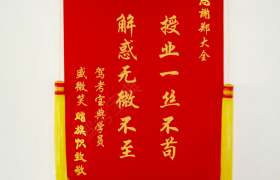 感谢郑大全
授业一丝不苟
解惑无微不至
驾考宝典学员
盛微笑 赠旗帜致敬